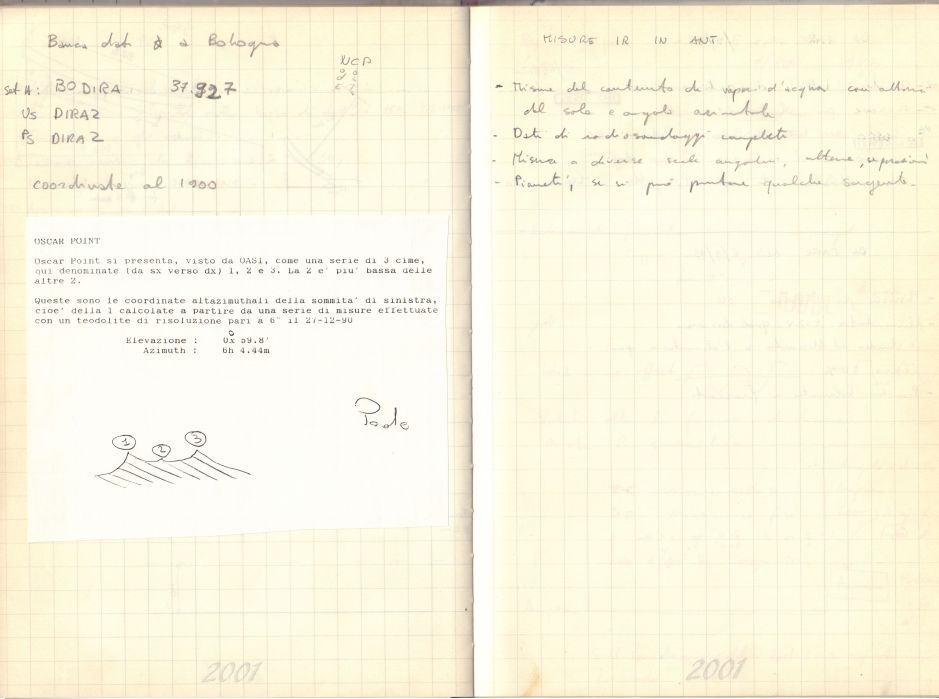 Banca dati a Bologna
NCP
Set H: BODIRA 37.927
Us DIRAZ
Ps DIRAZ
coordinate al 1900
OSCAR POINT
Oscar Point si presenta, visto da OASI, come una serie di 3 cime,
qui denominate (da sx verso dx) 1, 2 e 3. La 2 e' piu' bassa delle
altre 2.
Queste sono le coordinate altazimuthali della sommita' di sinistra,
cioe' della 1 calcolate a partire da una serie di misure effettuate
con un teodolite di risoluzione pari a 6" il 27-12-90
Elevazione : 0x 59.8'
Azimuth : 6h 4.44m
1 2 3
2001
MISURE IR IN ANT.
- Misure del contenuto di vapor d'acqua con altezza
del sole e angolo azimutale
- Dati di radiosondaggi completi
- Misura a diverse scale angolari, altezze, separazioni
- Pianeti, se si può puntare qualche sorgente.
2001